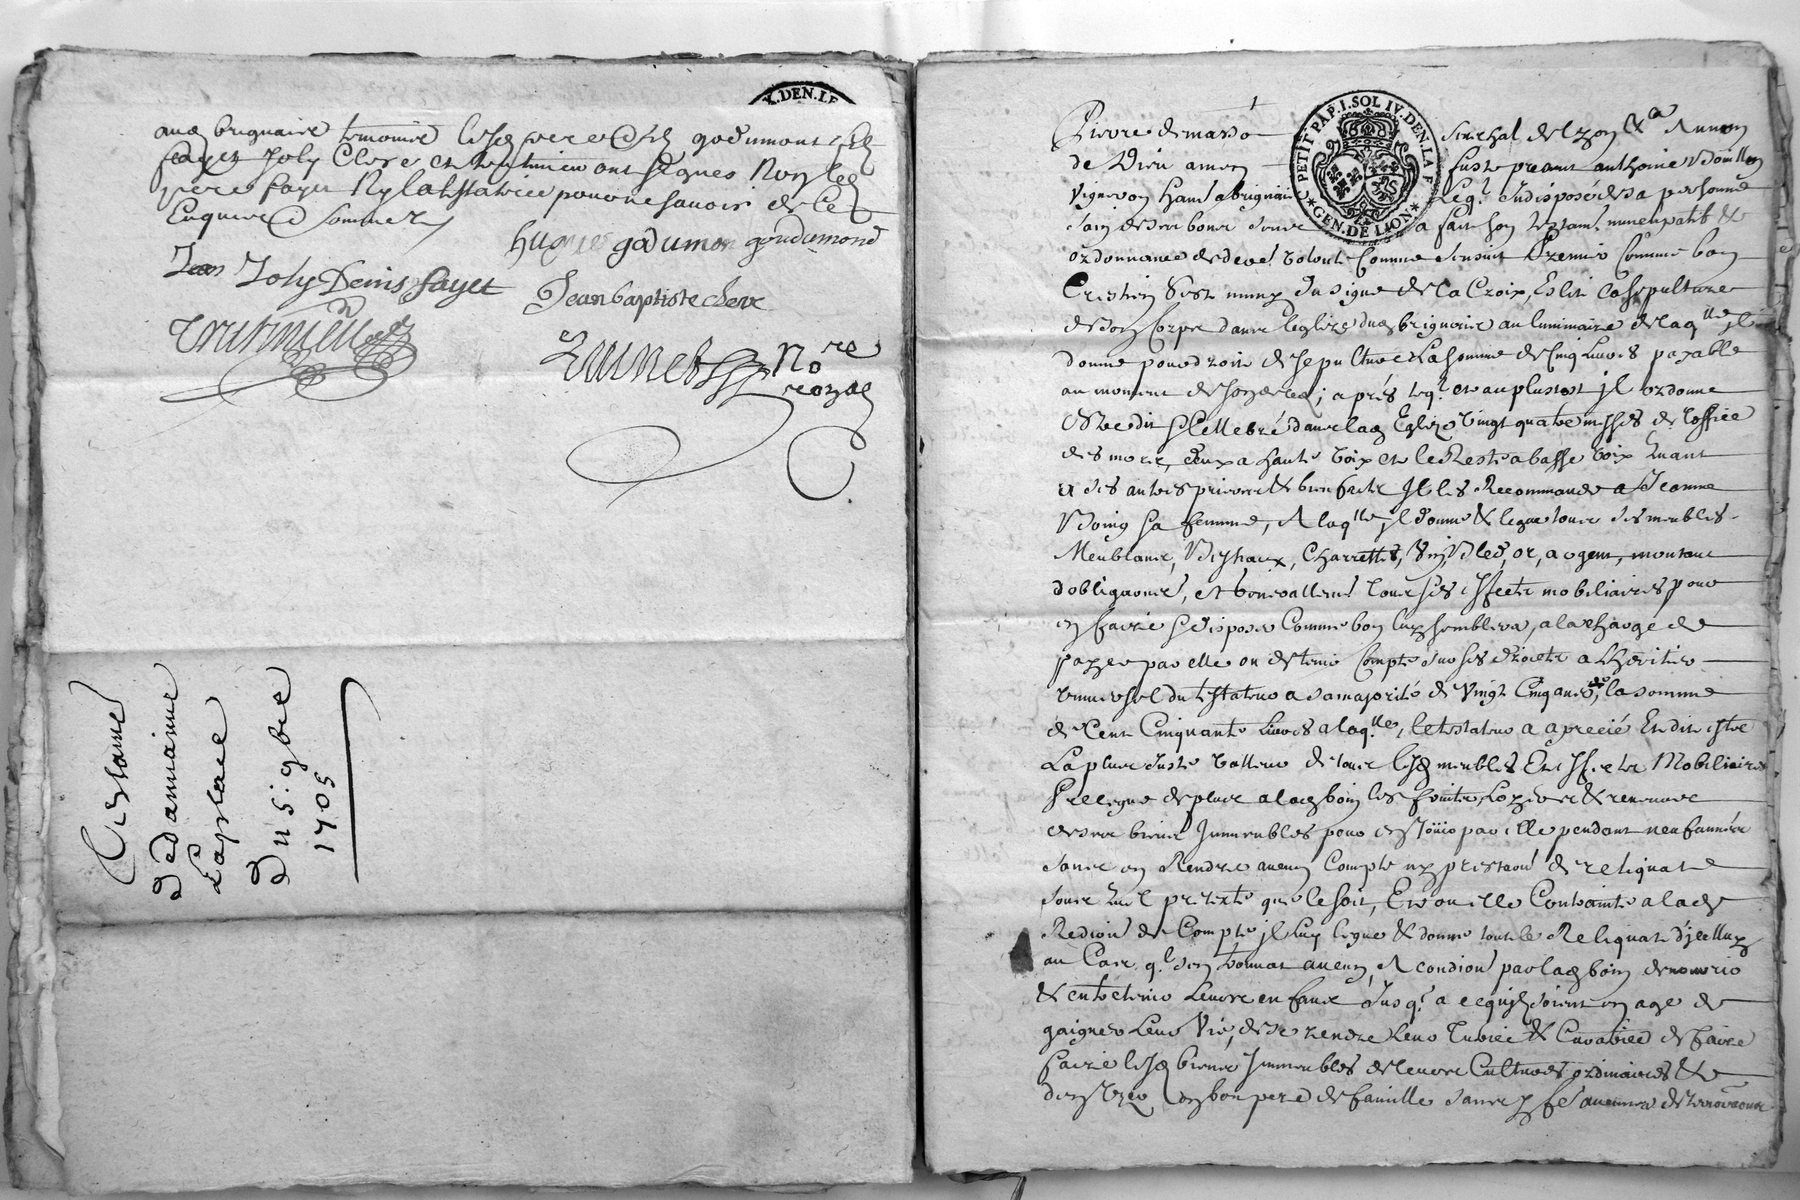 X.DEN.LE
aud brignaire temoins lesd pere et fils godumont led
fayet Joly Clere et tournieu ont signes non led
pere fayet ny la testatrice pour ne savoir de ce
Enquis et sommez
Hugues godumon goudumond
Jean Joly Denis fayet
Jean baptiste clere
Tournieu
No.re
royal
Testament
de damianne
Laplace
du 5: 9bre
1705
PETIT PAP. I. SOL IV. DEN. LA F
GEN. DE LION
Pierre Senechal de Lyon
de Dieu amen Fust present anthoine
Vigneron hant a brignais Leq.l Indisposé de sa personne
sain de ses bons sens a fait son testam.t nuncupatif &
ordonnance de dere volonte comme sensuit Premier Comme bon
Crestien sest muny du signe de la Croix, Eslit la sepulture
de son Corps dans leglize dud brignais au luminaire de laq.lle jl
donne pour droit de sepulture La somme de Cinq Livres payable
au moment de son deces; apres leq.l et au plustost jl ordonne
estre dit & Cellebré dans lad Eglize Vingt quatre messes de loffice
des morts, deux a haute voix et le Reste a basse voix Quant
a ses autres prieres & bienfaits Il les Recommande a Jeanne
sa femme, A laq.lle jl donne & legue tous ses meubles
Meublans, Bestiaux, Charrettes, Vin, Bled, or, argent, montant
dobligations, et generallement tous ses effects mobiliaires pour
en faire & disposer Comme bon luy semblera, a la charge de
payer par elle ou de tenir Compte sur ses droicts a Lheritier
universel du testateur a sa majorité de Vingt Cinq ans, la somme
de Cent Cinquante Livres a laq.lle, le testateur a apretié Et dit estre
La plus Juste valleur de tous lesd meubles Et effects Mobiliaires
Prelegue de plus a lad les fruits, Loyers & revenus
de ses biens Immeubles pour en Jouir par elle pendant neuf années
sans en Rendre aucun Compte ny prestaon de reliquat
sous quel pretexte que ce soit, Et ou elle Contrainte a lad
Redion de Compte jl luy legue & donne tout le Reliquat d'jcelluy
au Cas q.l sen trouvat aucun, A condion par lad de nourrir
& entretenir Leurs enfans Jusq.s a ce qujls soient en age de
gaigner Leur Vie, de se rendre Leur Tutrice & Curatrice de faire
faire lesd biens Immeubles de leurs Cultures ordinaires &
den Uzer en bon pere de famille sans y fe aucunes deteriorations